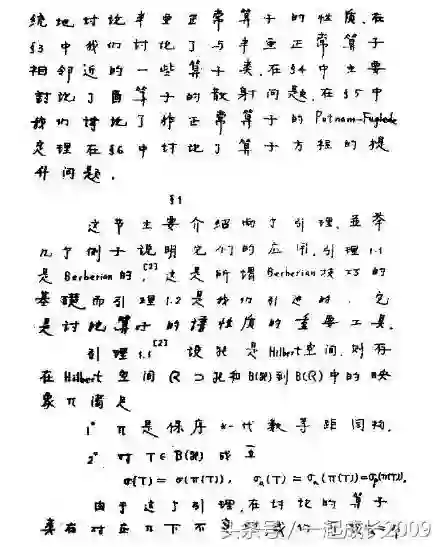 统地讨论半亚正常算子的性质.在
§3中我们讨论了与半亚正常算子
相邻近的一些算子类.在§4中主要
讨论了酉算子的散射问题.在§5中
我们讨论了非正常算子的Putnam-Fuglede
定理在§6中讨论了算子方程的提
升问题.
§1
这节主要介绍两个引理,并举
几个例子说明它们的应用.引理1.1
是Berberian的,[2]这是所谓Berberian技巧的
基礎而引理1.2是我们引进的.它
是讨论算子的谱性质的重要工具.
引理1.1[2] 设ℋ是Hilbert空间.则存
在Hilbert空间ℛ⊃ℋ和B(ℋ)到B(ℛ)中的映
象π满足
1° π是保序*-代数等距同构.
2° 对T∈B(ℋ)成立
σ(T)=σ(π(T)), σa(T)=σa(π(T))=σp(π(T)).
由于这个引理,在讨论的算子
类在对在π下不
头条 / 一起成长2009